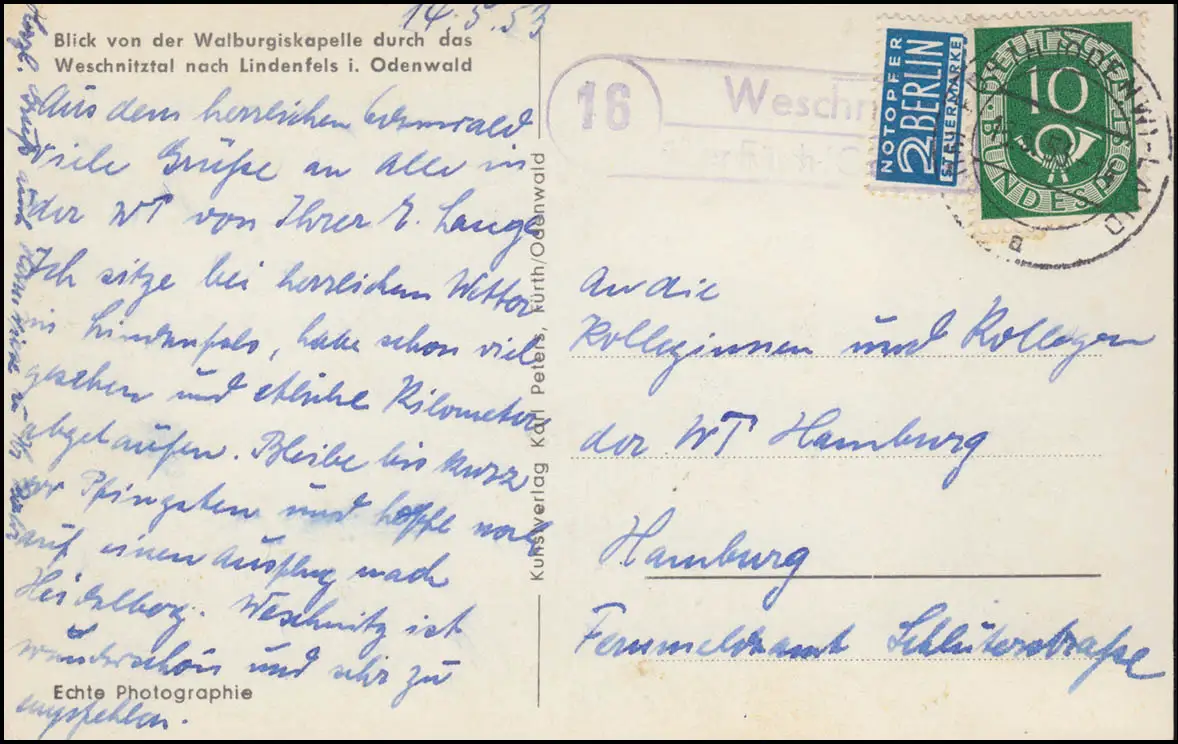 14.5.53
Blick von der Walburgiskapelle durch das
Weschnitztal nach Lindenfels i. Odenwald
Aus dem herrlichen Odenwald
viele Grüße an alle in
der WT von Ihrer E. Lange
Ich sitze bei herrlichem Wetter
in Lindenfels, habe schon viel
gesehen und etliche Kilometer
abgelaufen. Bleibe bis kurz
vor Pfingsten und hoffe noch
auf einen Ausflug nach
Heidelberg. Weschnitz ist
wunderschön und sehr zu
empfehlen.
Echte Photographie
Herzl. Grüße auch
Kunstverlag Karl Peters, Fürth/Odenwald
16
Weschn
NOTOPFER
2 BERLIN
STEUERMARKE
10
DEUTSCHE
BUNDESPOST
a
An die
Kolleginnen und Kollegen
der WT Hamburg
Hamburg
Fernmeldeamt Schlüterstraße